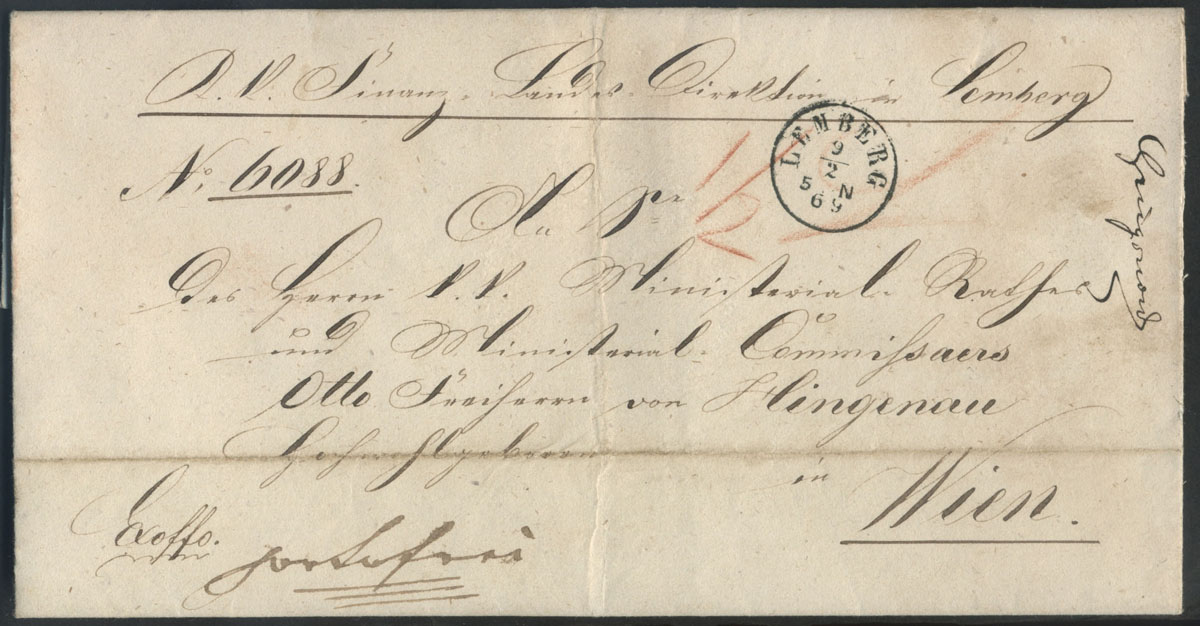 K. K. Finanz-Landes-Direktion in Lemberg
LEMBERG
9
2
5 N
69
No. 6088.
An
des Herrn K. K. Ministerial-Rathes
und Ministerial-Commissaers
Otto Freiherrn von Hingenau
Hochwohlgeboren
in
Wien.
Exoffo.
portofrei